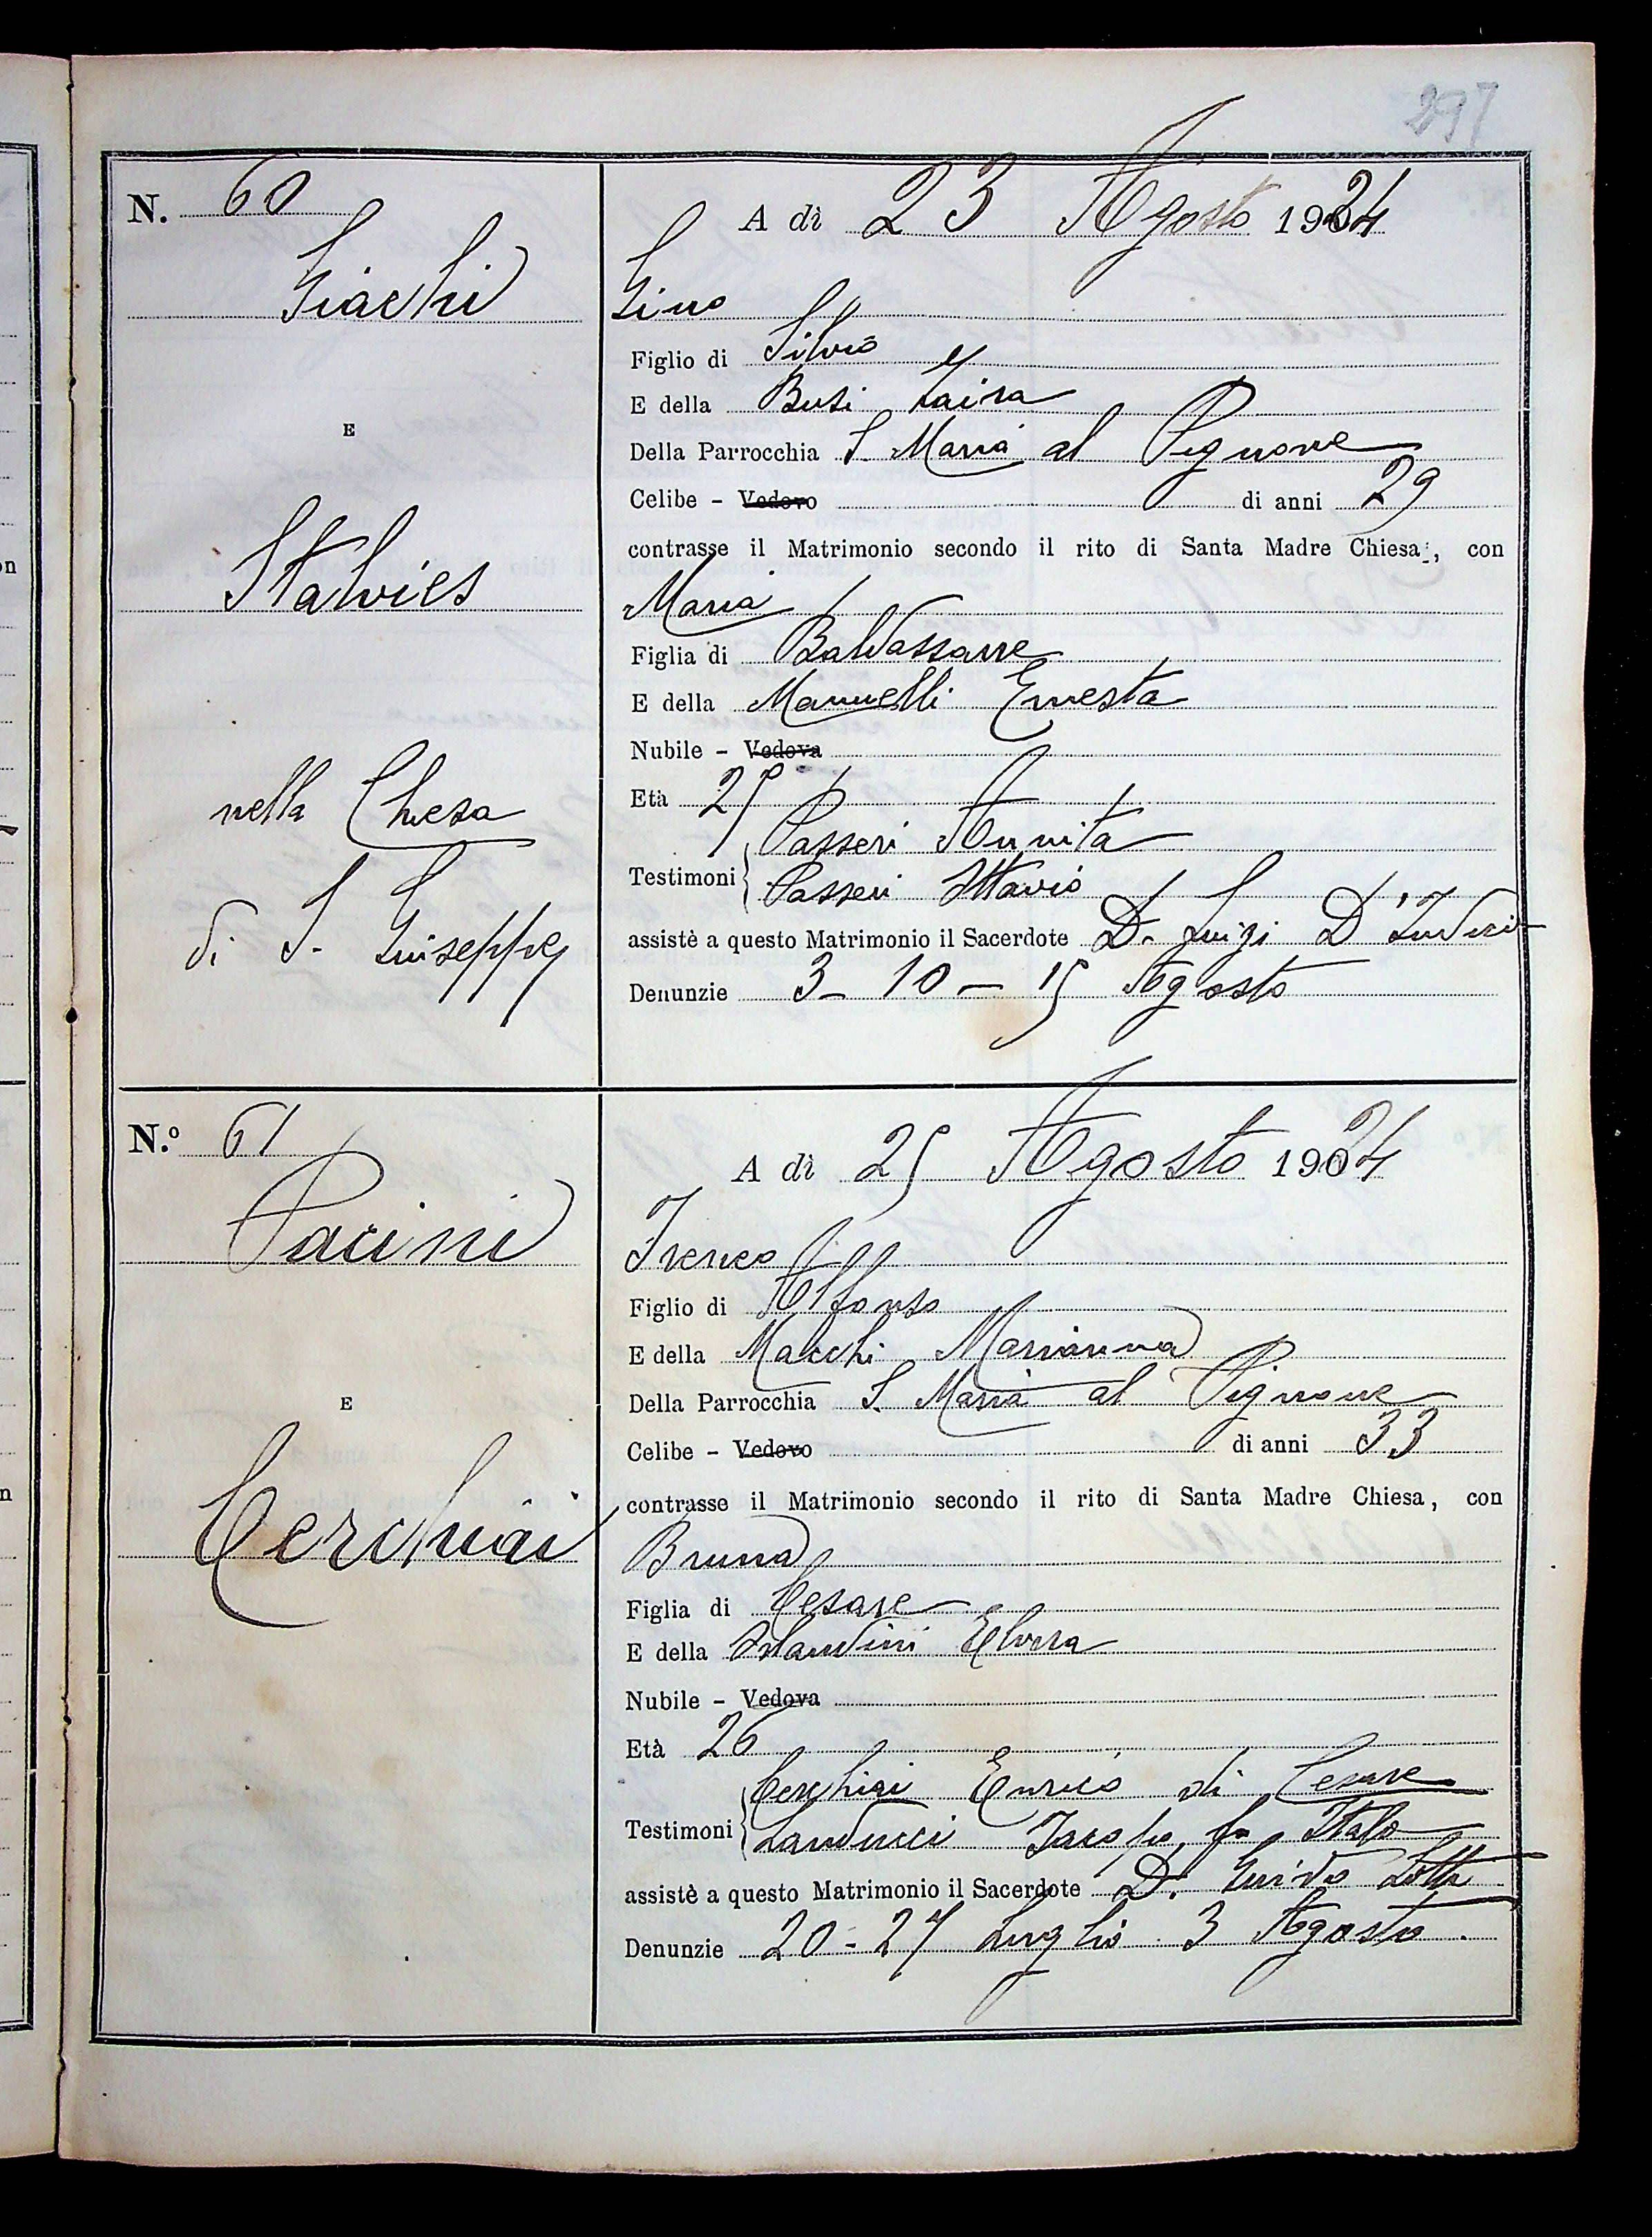 297
N. 60
A dì 23 Agosto 1924
Giachi
Gino
Figlio di Silvio
E della Busi Zaira
E
Della Parrocchia S. Maria al Pignone
Celibe - Vedovo di anni 29
contrasse il Matrimonio secondo il rito di Santa Madre Chiesa, con
Stalvies
Maria
Figlia di Baldassarre
E della Mannelli Ernesta
Nubile - Vedova
Età 25
nella Chiesa
di S. Giuseppe
Testimoni Passeri Annita
Passeri Ottavio
assistè a questo Matrimonio il Sacerdote D. Luigi
Denunzie 3 - 10 - 15 Agosto
N.° 61
A dì 25 Agosto 1924
Pacini
Ireneo
Figlio di Alfonso
E della Macchi Marianna
E
Della Parrocchia S. Maria al Pignone
Celibe - Vedovo di anni 33
contrasse il Matrimonio secondo il rito di Santa Madre Chiesa, con
Cerchiai
Bruna
Figlia di Cesare
E della Orlandini Elvira
Nubile - Vedova
Età 26
Testimoni Cerchiai Enrico di Cesare
Landucci Jacopo fu Italo
assistè a questo Matrimonio il Sacerdote D. Guido Lotti
Denunzie 20 - 27 Luglio 3 Agosto.